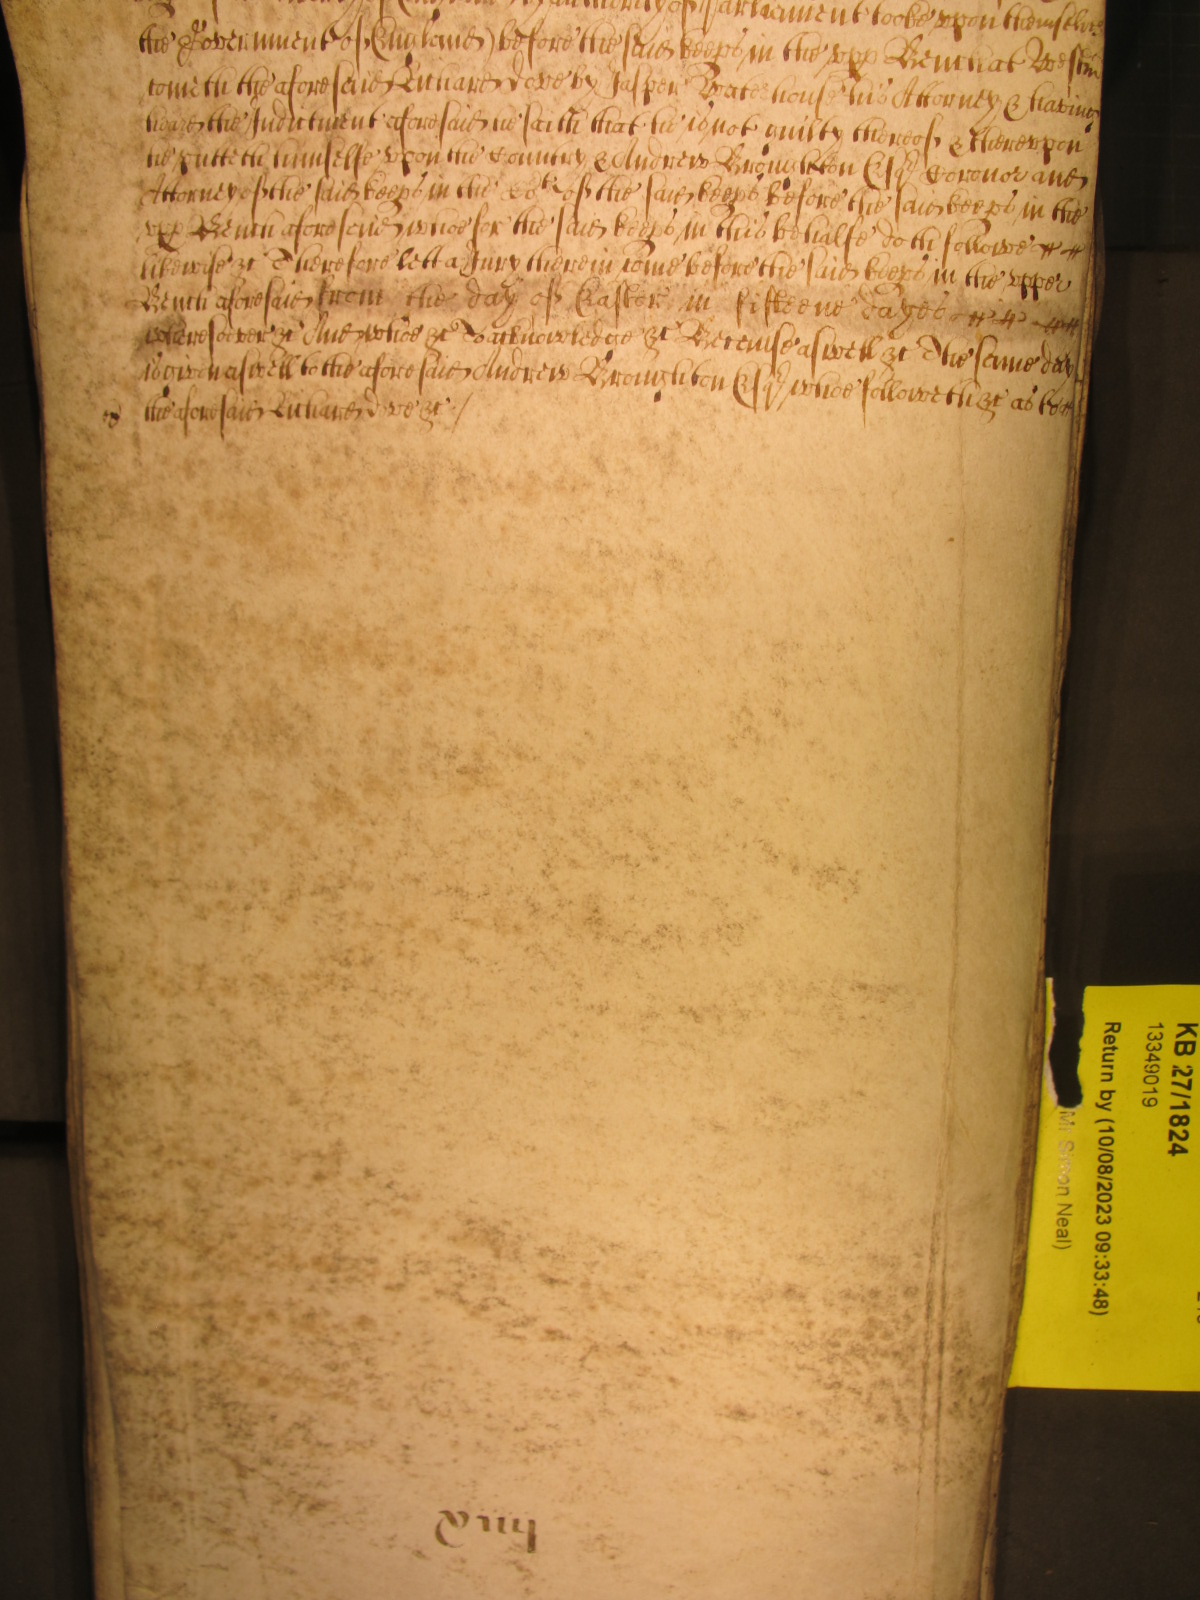 authority of Parliament tooke vpon themselves
the Government of England) before the said keeps in the vpp Bench at Westm
cometh the aforesaid Richard Dove by Jasper Waterhouse his Attorney & having
heard the Indictment aforesaid he saith that he is not guilty thereof & therevpon
he putteth himselfe vpon the Country & Andrew Broughton Esqr Coronor and
Attorney of the said keeps in the Cort of the said keeps before the said keeps in the
vpp Bench aforesaid whoe for the said keeps in this behalfe doth followe
likewise &c Therefore lett a Jury therein come before the said keeps in the vpper
Bench aforesaid from the day of Easter in fifteene dayes
wheresoever &c And whoe &c To acknowledge &c Because aswell &c The same day
is given aswell to the aforesaid Andrew Broughton Esqr whoe followeth &c as to
the aforesaid Richard Dove &c /
KB 27/1824
13349019
Return by (10/08/2023 09:33:48)
Mr Simon Neal)